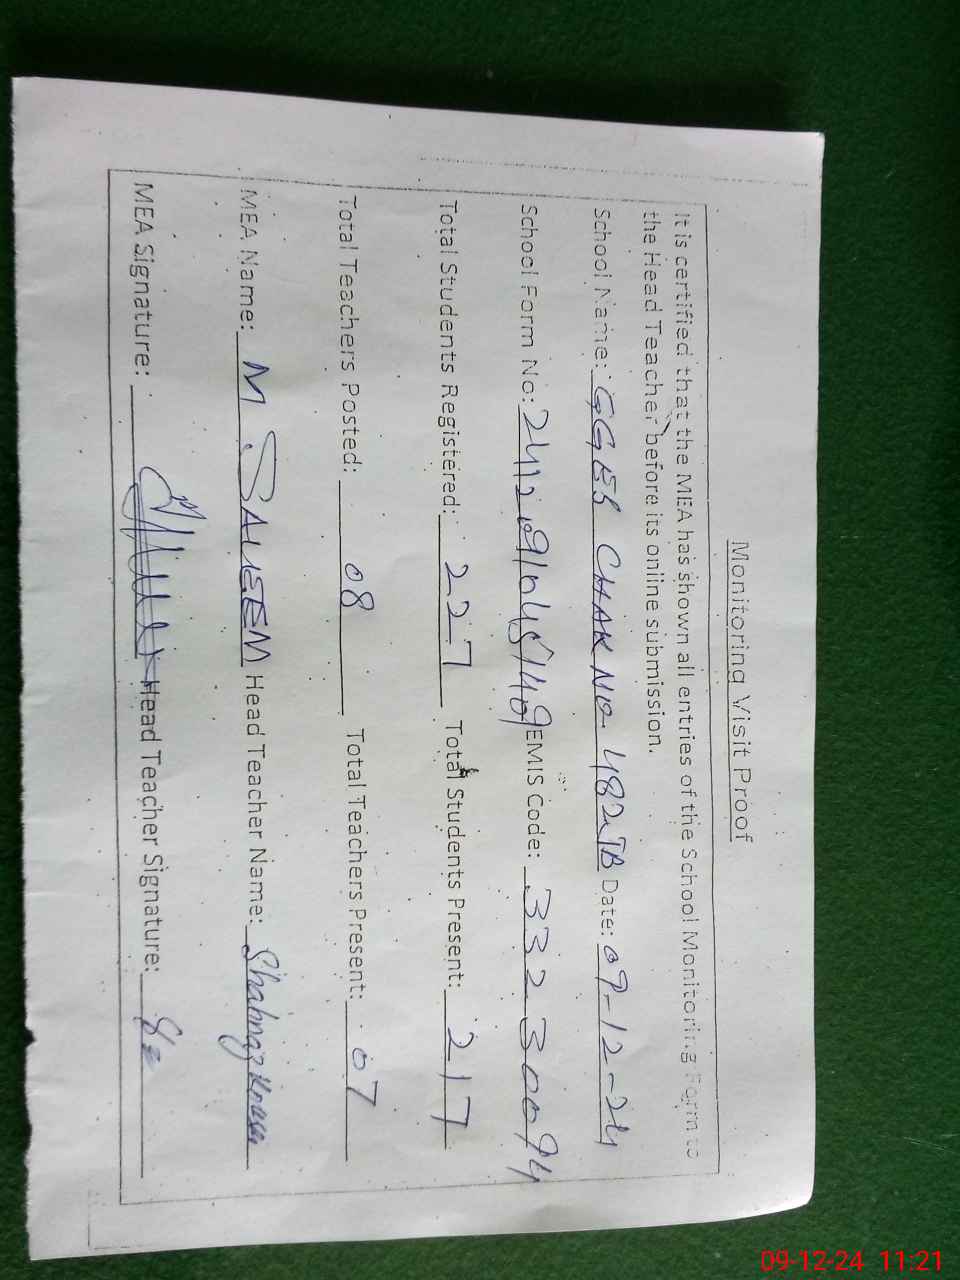 Monitoring Visit Proof
It is certified that the MEA has shown all entries of the School Monitoring Form to
the Head Teacher before its online submission.
School Name: GGES CHAK NO. 482 JB Date: 09-12-24
School Form No: EMIS Code: 33230094
Total Students Registered: 227 Total Students Present: 217
Total Teachers Posted: 08 Total Teachers Present: 07
MEA Name: M SALEEM Head Teacher Name: Shahnaz Kousar
MEA Signature: Head Teacher Signature:
09-12-24 11:21